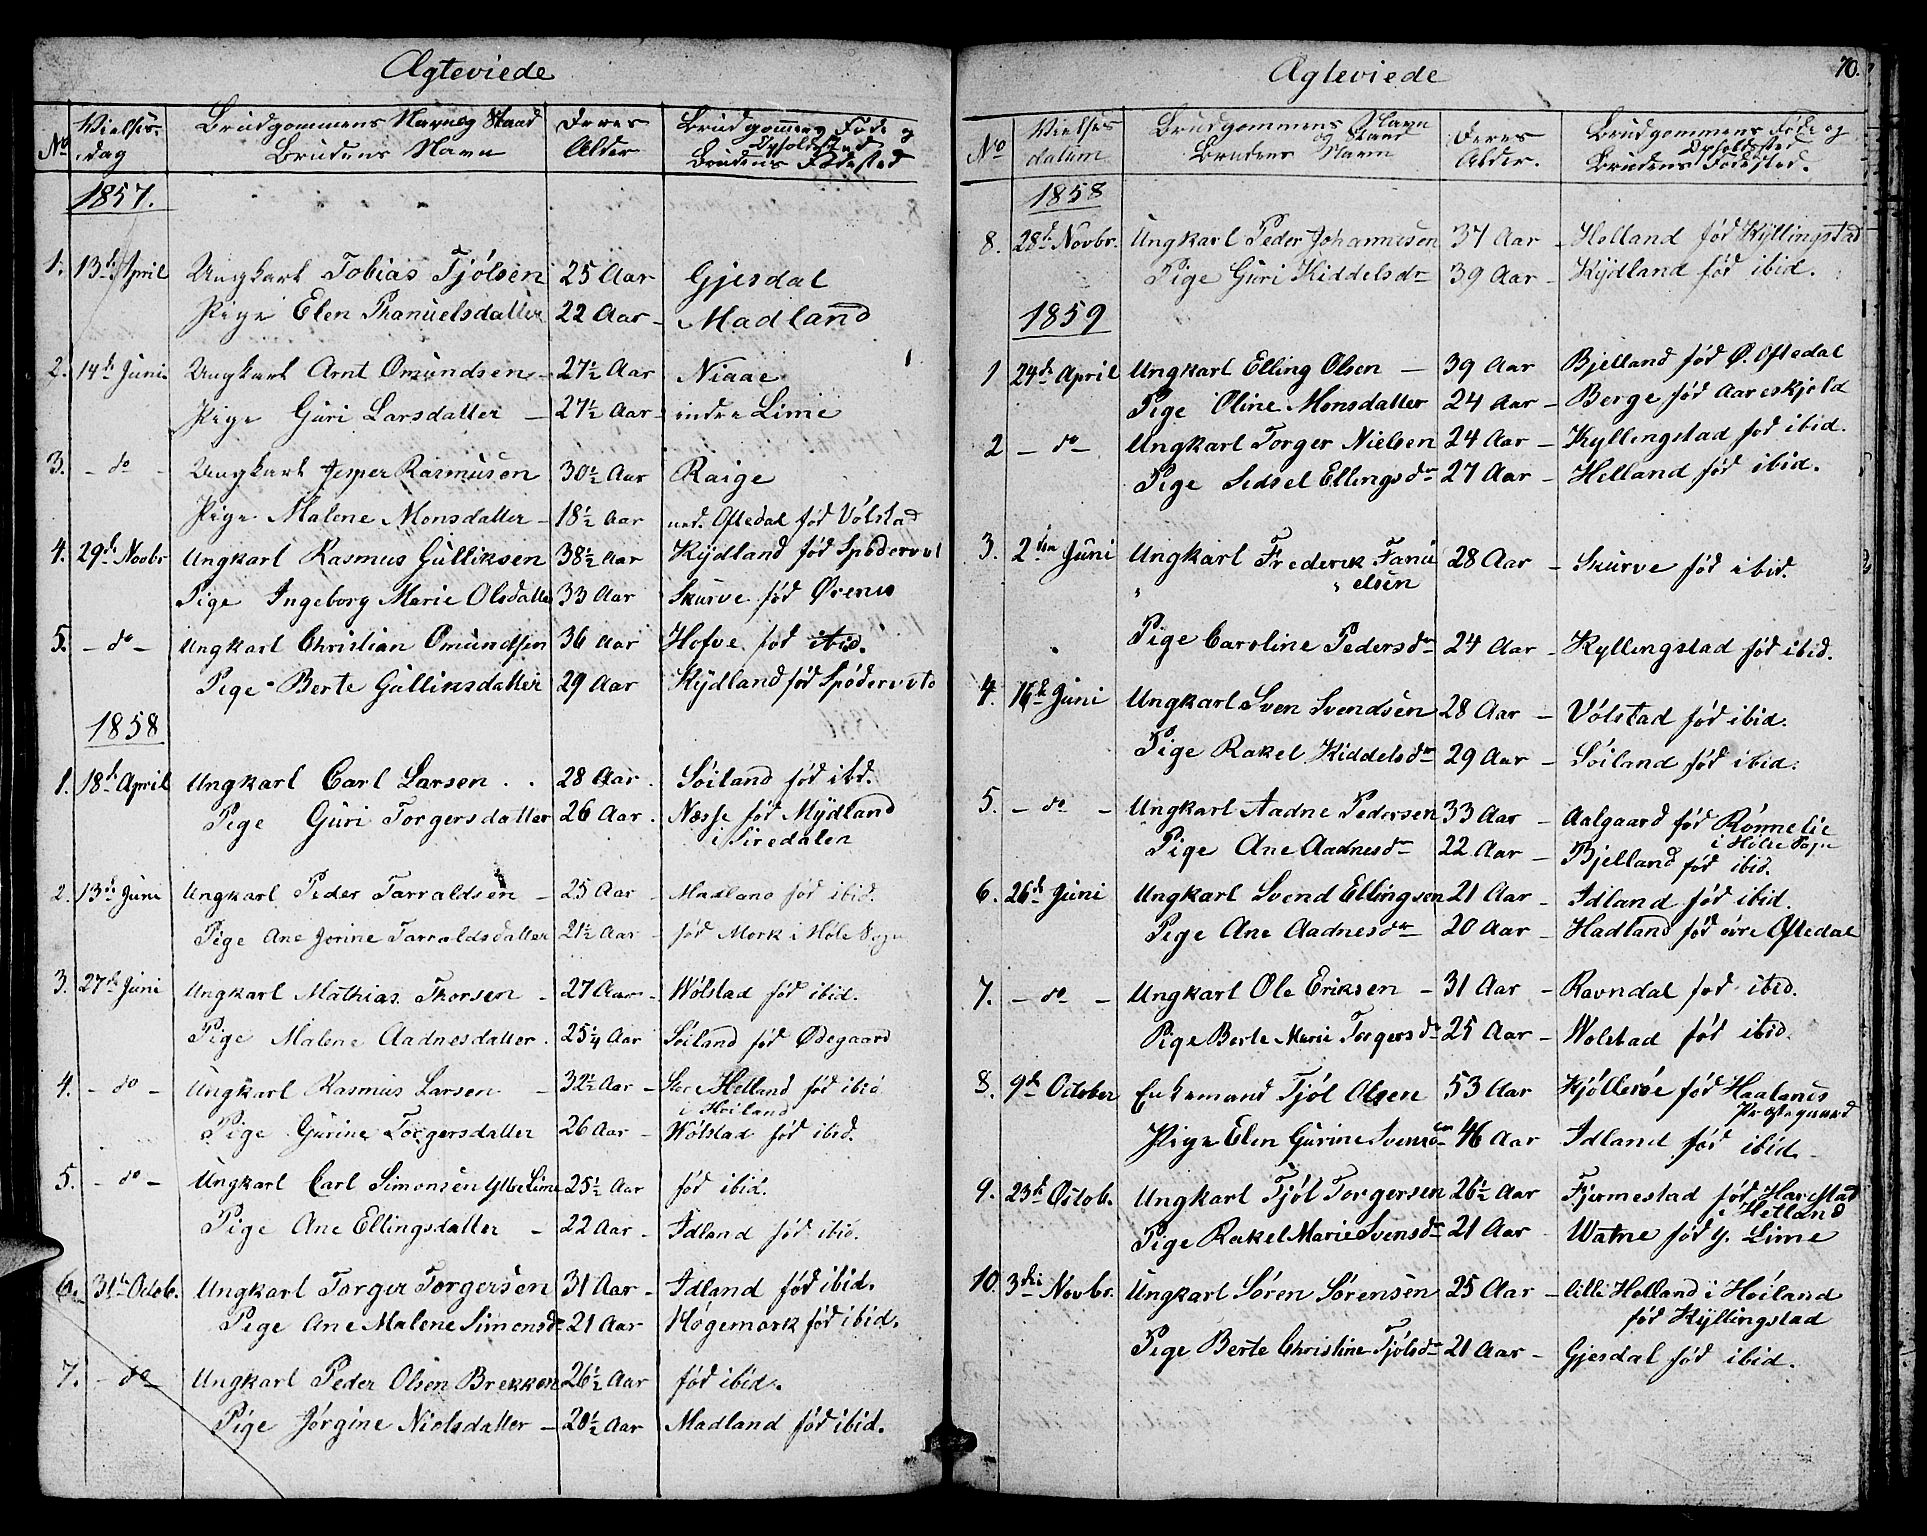 Ægteviede
No Vielses-dag Brudgommens Navn og Stand Brudens Navn Deres Alder Brudgommens Føde og Opholdsted Brudens Fødested
1857.
1. 13de April Ungkarl Tobias Tjølsen 25 Aar Gjesdal
Pige Elen Thanuelsdatter 22 Aar - Madland
2. 14de Juni. Ungkarl Arnt Omundsen - 27½ Aar Niaae
Pige Guri Larsdatter - 27½ Aar - indre Lime
3. - do - Ungkarl Jesper Rasmusen 30½ Aar Raige
Pige Malene Monsdatter - 18½ Aar ned. Oftedal fød Vølstad
4. 29de Novbr Ungkarl Rasmus Gulliksen 38½ Aar Kydland fød
Pige Ingeborg Marie Olsdatter 33 Aar Skurve fød
5. - do - Ungkarl Christian Omundsen 36 Aar Hofve fød ibid.
Pige Berte Gulliksdatter 29 Aar Kydland fød
1858
1. 18de April Ungkarl Carl Larsen . . 28 Aar . Søiland fød ibd.
Pige Guri Torgersdatter 26 Aar . Nesse fød Mydland
i Siredalen
2. 13de Juni Ungkarl Peder Tarraldsen - 25 Aar - Madland fød ibid.
Pige Ane Jorine Tarraldsdatter 21½ Aar - fød Mork i Høle Sogn
3. 27de Juni Ungkarl Mathias Thorsen - 27 Aar - Wølstad fød ibid.
Pige Malene Aadnesdatter . 25¼ Aar Søiland fød Ødegaard
4. - do - Ungkarl Rasmus Larsen - 32½ Aar - Store Helland fød ibid
i Høiland
Pige Gurine Torgersdatter 26 Aar - Wølstad fød ibid.
5. - do - Ungkarl Carl Simonsen Ytre Lime 25½ Aar fød ibid.
Pige Ane Ellingsdatter - 22 Aar - Idland fød ibid.
6. 31te Octob. Ungkarl Torger Torgersen 31 Aar - Idland fød ibid.
Pige Ane Malene Simonsdr 21 Aar Høgemork fød ibid.
7. - do - Ungkarl Peder Olsen Brekken 26½ Aar fød ibid.
Pige Jørgine Nielsdatter - 20½ Aar Madland fød ibid.
Ægteviede 70.
No Vielses datum Brudgommens Navn og Stand Brudens Navn Deres Alder. Brudgommens Føde og Opholdsted Brudens Fødested.
1858
8. 28de Novbr. Ungkarl Peder Johannesen 37 Aar - Helland fød Kyllingstad
Pige Guri Kiddelsdr 39 Aar - Kydland fød ibid.
1859
1 24de April Ungkarl Elling Olsen - 39 Aar Bjelland fød Ø. Oftedal
Pige Oline Monsdatter 24 Aar - Berge fød Aareskjold
2 - do - Ungkarl Torger Nielsen 24 Aar - Kyllingstad fød ibid.
Pige Sidsel Ellingsdr 27 Aar - Helland fød ibid.
3. 2den Juni Ungkarl Frederik Fanu 28 Aar - Skurve fød ibid.
elsen
Pige Caroline Pedersdr 24 Aar - Kyllingstad fød ibid.
4. 16de Juni Ungkarl Sven Svendsen 28 Aar - Vølstad fød ibid.
Pige Rakel Kiddelsdr 29 Aar - Søiland fød ibid.
5. - do - Ungkarl Aadne Pedersen 33 Aar - Aalgaard fød Rønnelie
i Høle Sogn
Pige Ane Aadnesdr 22 Aar - Bjelland fød ibid.
6. 26de Juni Ungkarl Svend Ellingsen 21 Aar - Idland fød ibid.
Pige Ane Aadnesdr 20 Aar - Hadland fød øvre Oftedal
7. - do - Ungkarl Ole Eriksen - 31 Aar - Ravndal fød ibid.
Pige Berte Marie Torgersdr 25 Aar - Wolstad fød ibid.
8. 9de October Enkemand Tjøl Olsen 53 Aar Kjøllerøe fød Haalands
Præstegaard
Pige Elen Gurine Svensdr 46 Aar Idland fød ibid.
9. 23de Octob. Ungkarl Tjøl Torgersen 26½ Aar Fjermestad fød Harestad
i Hetland
Pige Rakel Marie Svensdr 21 Aar - Watne fød y. Lime
10. 3die Novbr. Ungkarl Søren Sørensen 25 Aar - lille Helland i Høiland
fød Kyllingstad
Pige Berte Christine Tjølsdr 21 Aar - Gjesdal fød ibid.